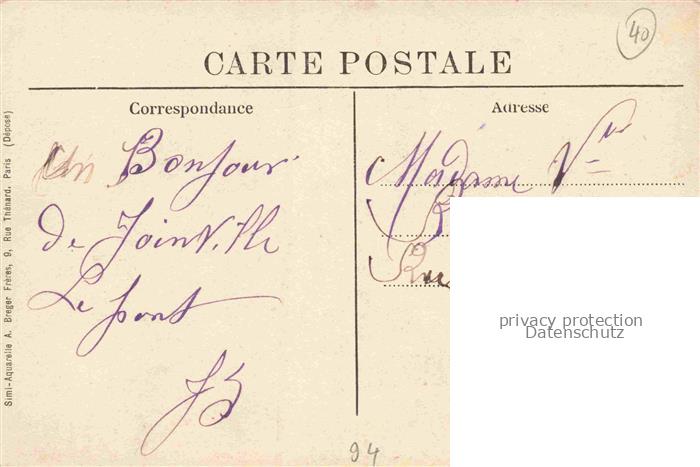 40
CARTE POSTALE
Correspondance
Adresse
Un Bonjour
de Joinville
Le pont
JB
Madame Vve
Rue
privacy protection
Datenschutz
94
Simi-Aquarelle A. Breger Frères, 9, Rue Thénard, Paris (Déposé)